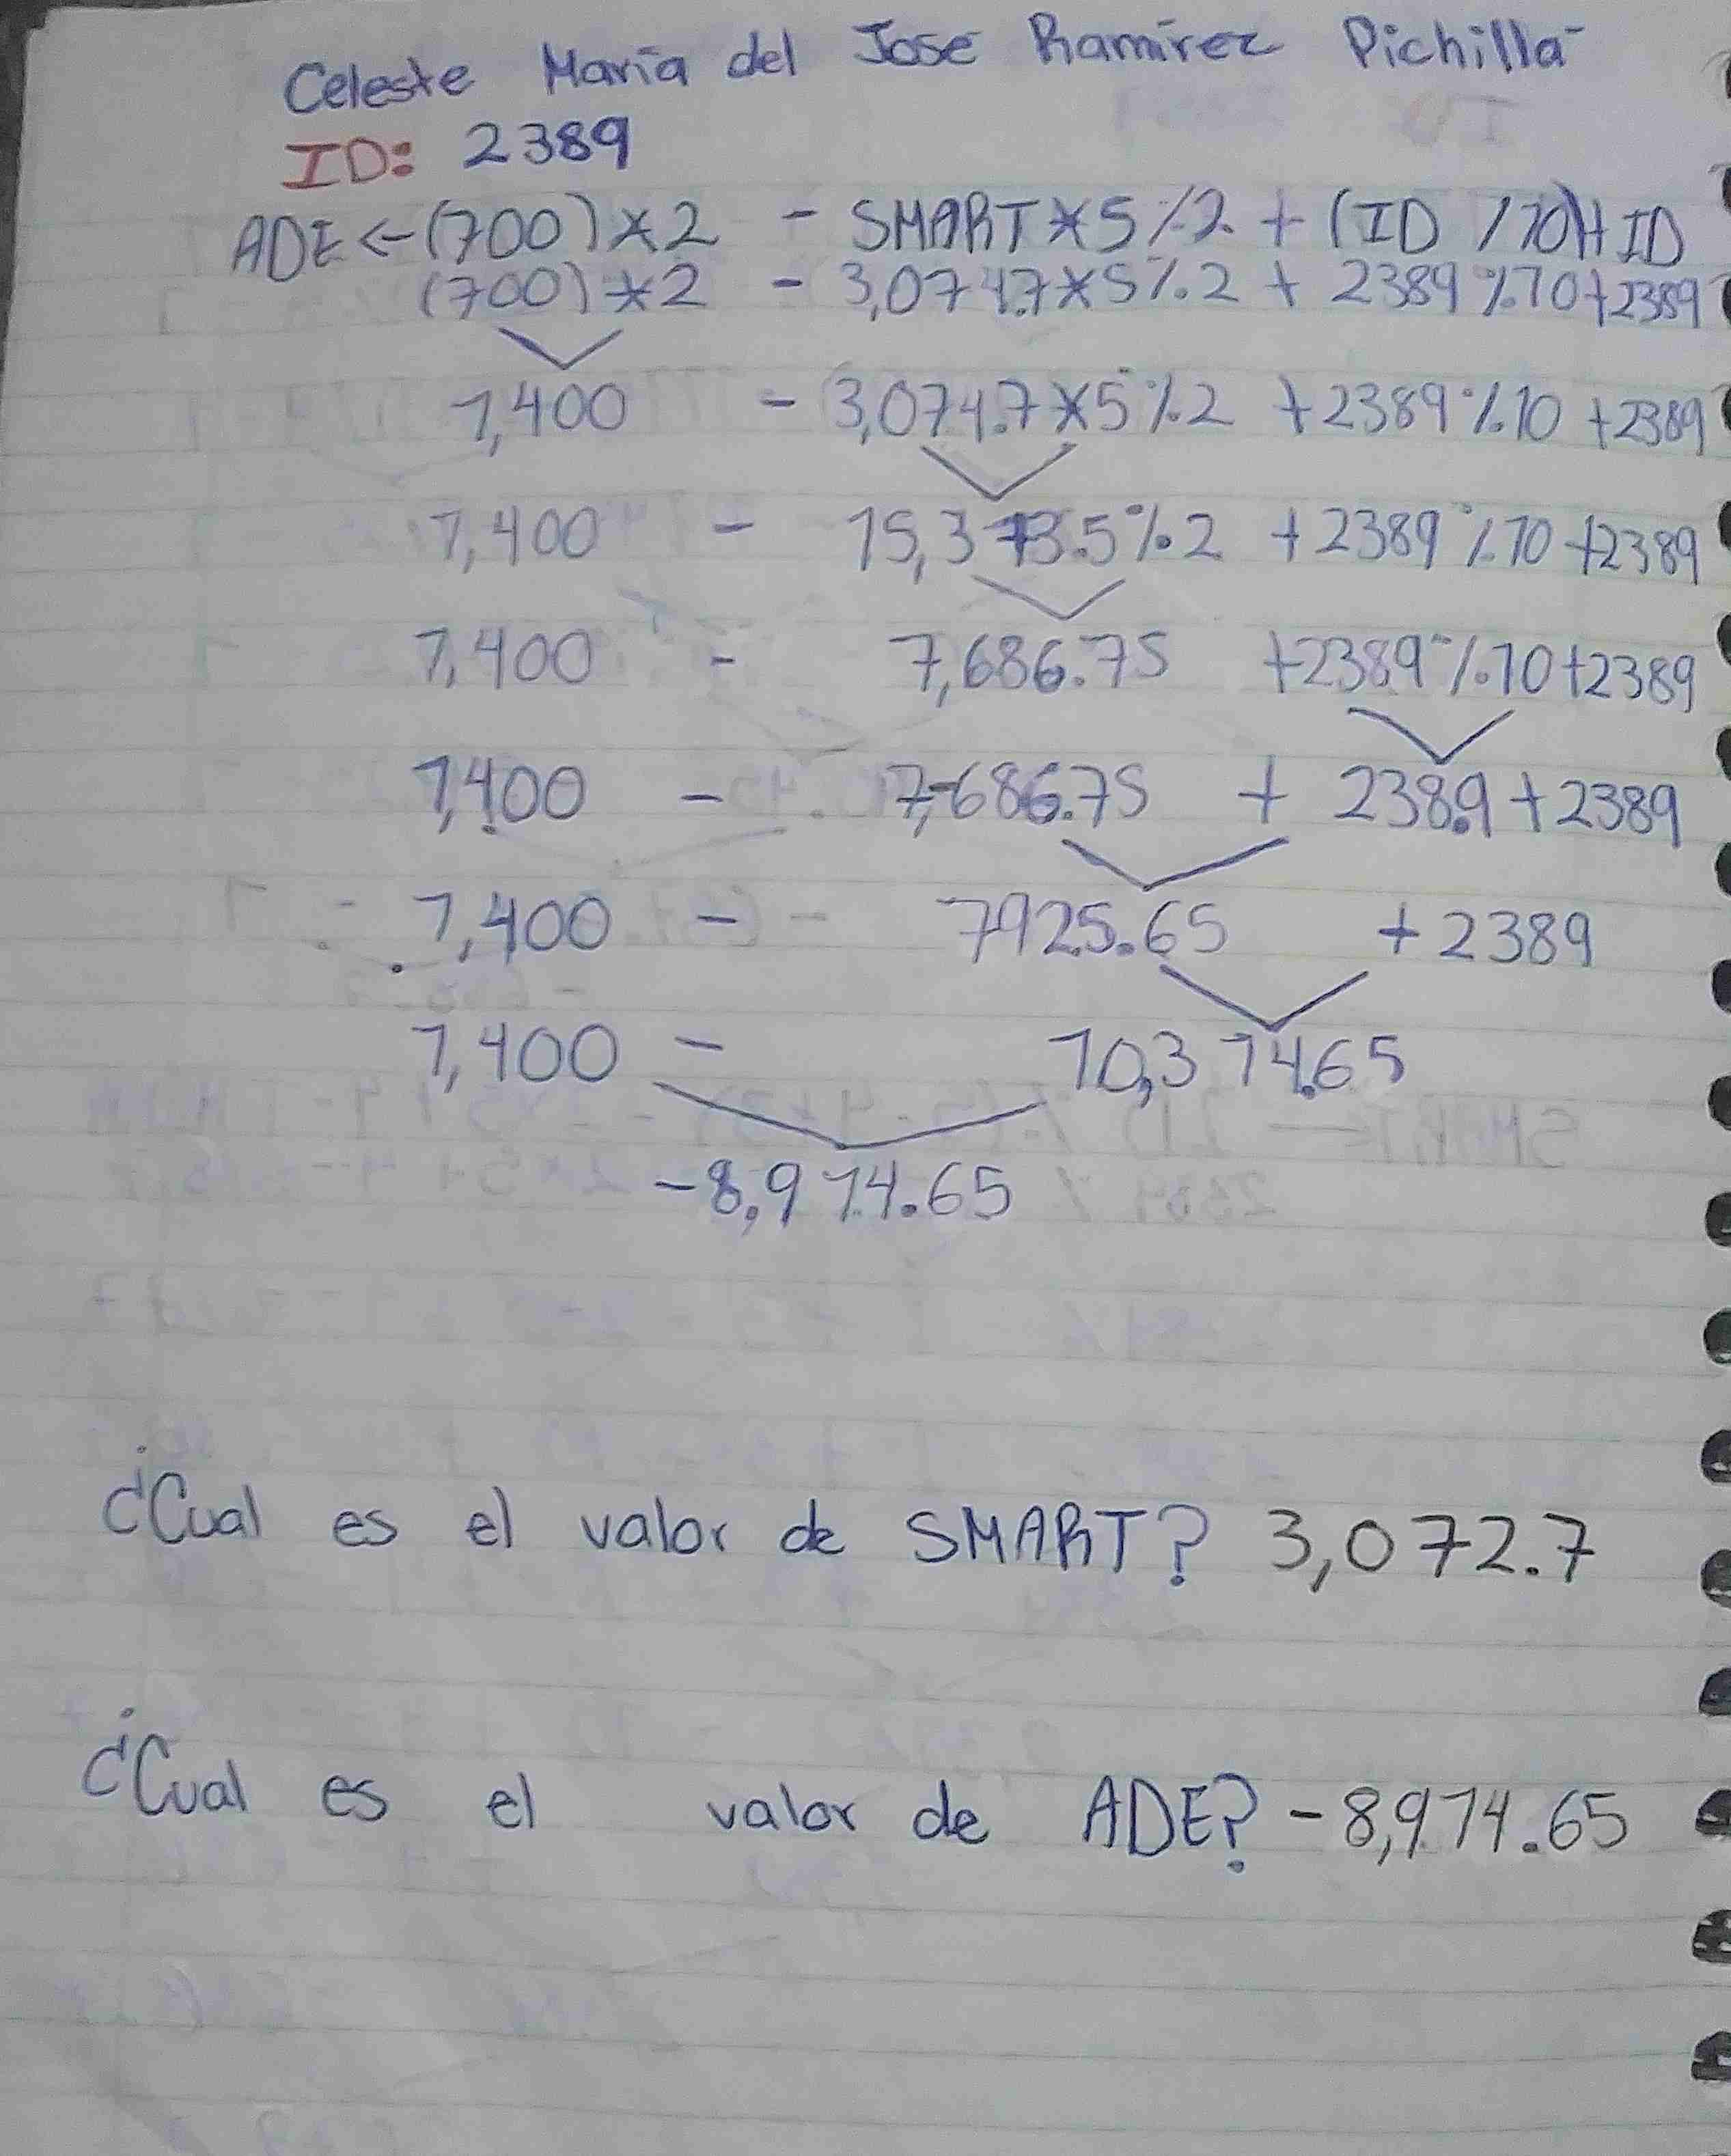 Celeste María del José Ramírez Pichillá
ID: 2389
ADE <- (700) * 2 - SMART * 5 % 2 + (ID / 10) + ID
(700) * 2 - 3,074.7 * 5 % 2 + 2389 % 10 + 2389
1,400 - 3,074.7 * 5 % 2 + 2389 % 10 + 2389
1,400 - 15,373.5 % 2 + 2389 % 10 + 2389
1,400 - 7,686.75 + 2389 % 10 + 2389
1,400 - 7,686.75 + 238.9 + 2389
1,400 - 7925.65 + 2389
1,400 - 10,314.65
-8,914.65
¿Cual es el valor de SMART? 3,072.7
¿Cual es el valor de ADE? -8,914.65